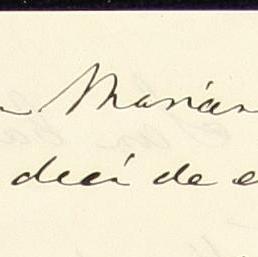 Marian
deci de e